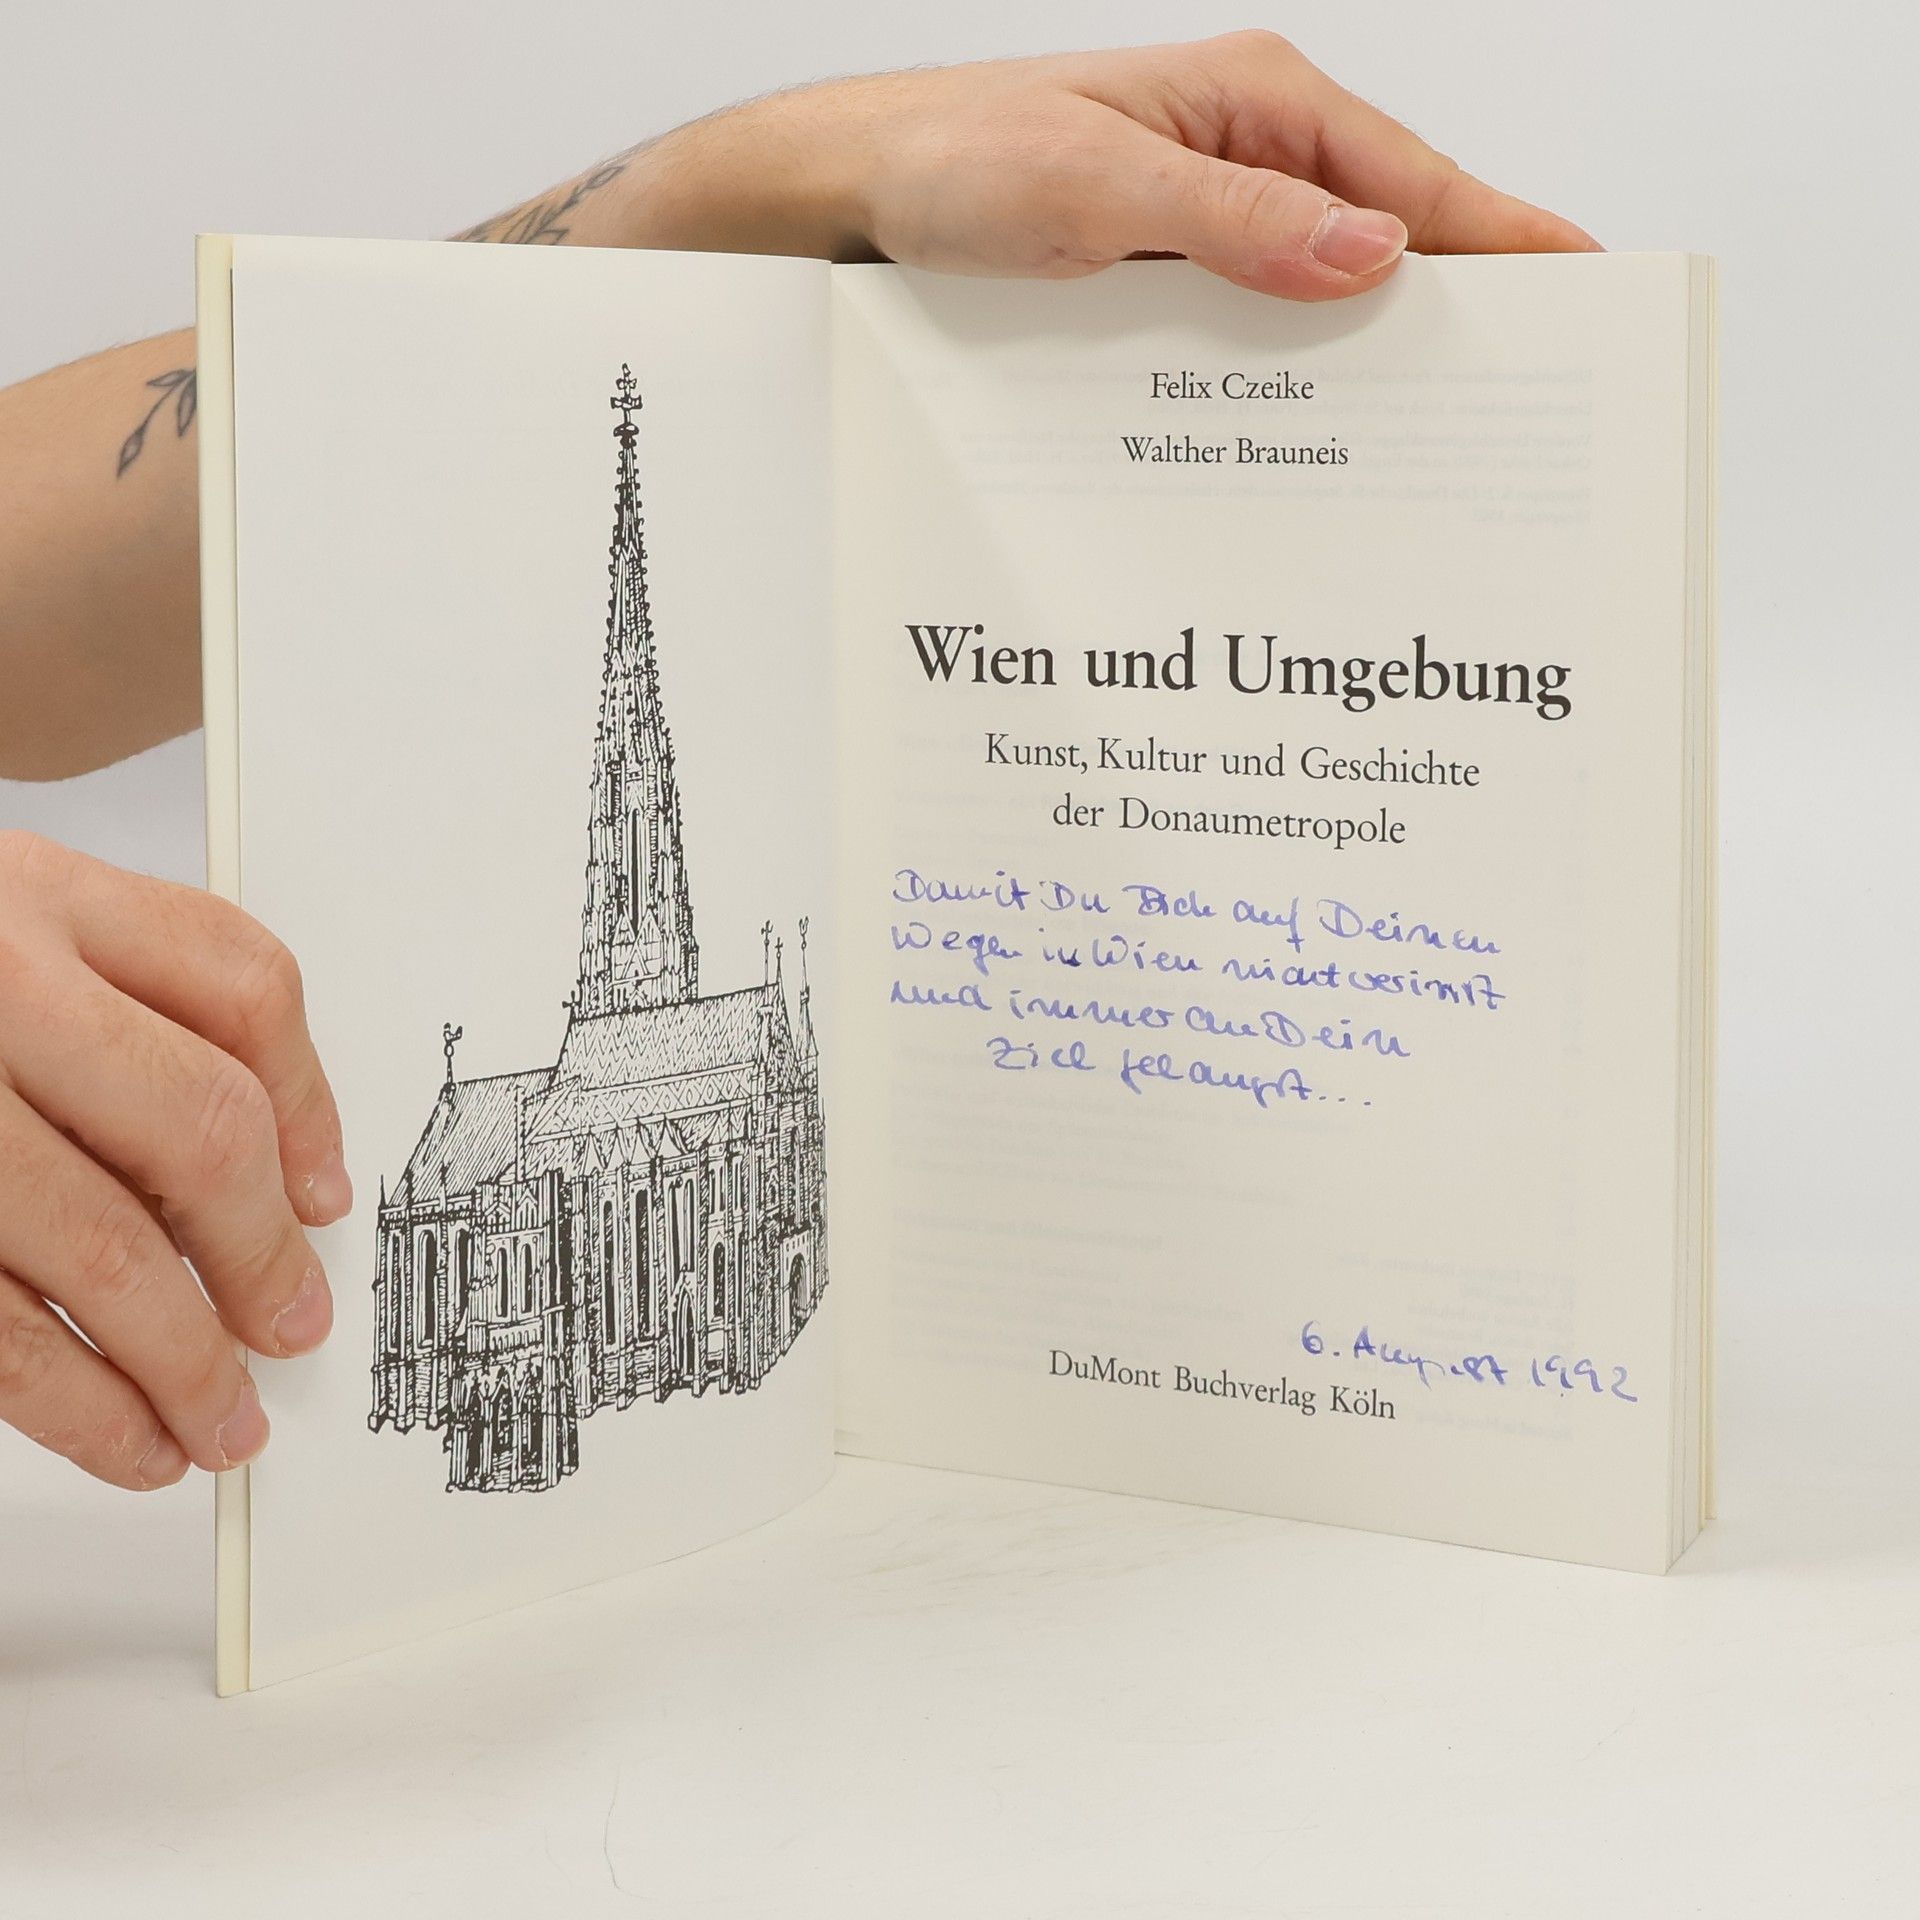 Felix Czeike
Walther Brauneis
Wien und Umgebung
Kunst, Kultur und Geschichte
der Donaumetropole
Damit Du Dich auf Deinen
Wegen in Wien nicht verirrst
und immer an Dein
Ziel gelangst...
6. August 1992
DuMont Buchverlag Köln